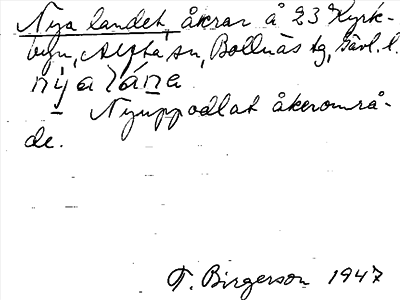 Nya landet, åkrar å 23 Kyrk-
byn, Alfta sn, Bollnäs tg, Gävl. l.
nya láne
Nyuppodlat åkerområ-
de.
T. Birgerson 1947